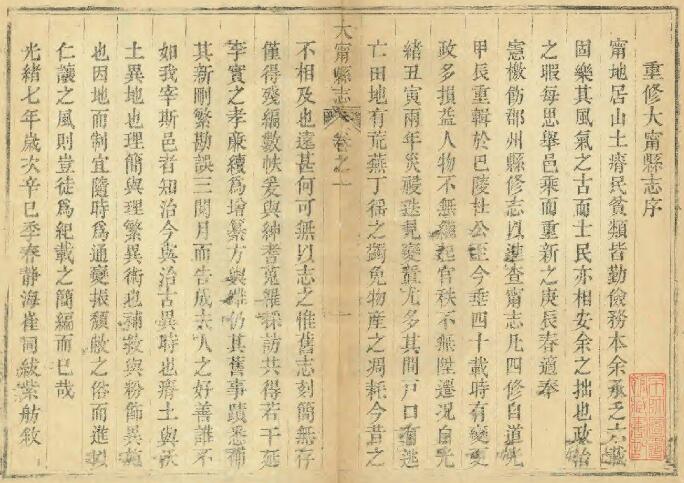 重修大甯縣志序
甯地居山土瘠民貧類皆勤儉務本余承乏六載
固樂其風氣之古而士民亦相安余之拙也政治
之暇每思舉邑乘而重新之庚辰春適奉
憲檄飭郡州縣修志以進查甯志凡四修自道光
甲辰重輯於巴陵杜公至今垂四十載時有變更
政多損益人物不無繼起官秩不無陞遷况自光
緒丑寅兩年災祲迭見變置尤多其間戶口有逃
亡田地有荒蕪丁徭之蠲免物產之凋耗今昔之
大甯縣志 卷之一
不相及也遠甚何可無以志之惟舊志刻簡無存
僅得殘編數帙爰與紳耆蒐羅採訪共得若干延
李實之孝廉續為增纂方輿雖仍其舊事蹟悉補
其新刪繁勘誤三閱月而告成夫人之好善誰不
如我宰斯邑者知治今與治古異時也瘠土與沃
土異地也理簡與理繁異術也補救與粉飾異
也因地而制宜隨時為通變振頽敝之俗而進
仁讓之風則豈徒為紀載之簡編而已哉
光緒七年歲次辛巳季春靜海崔同紱紫舫敘